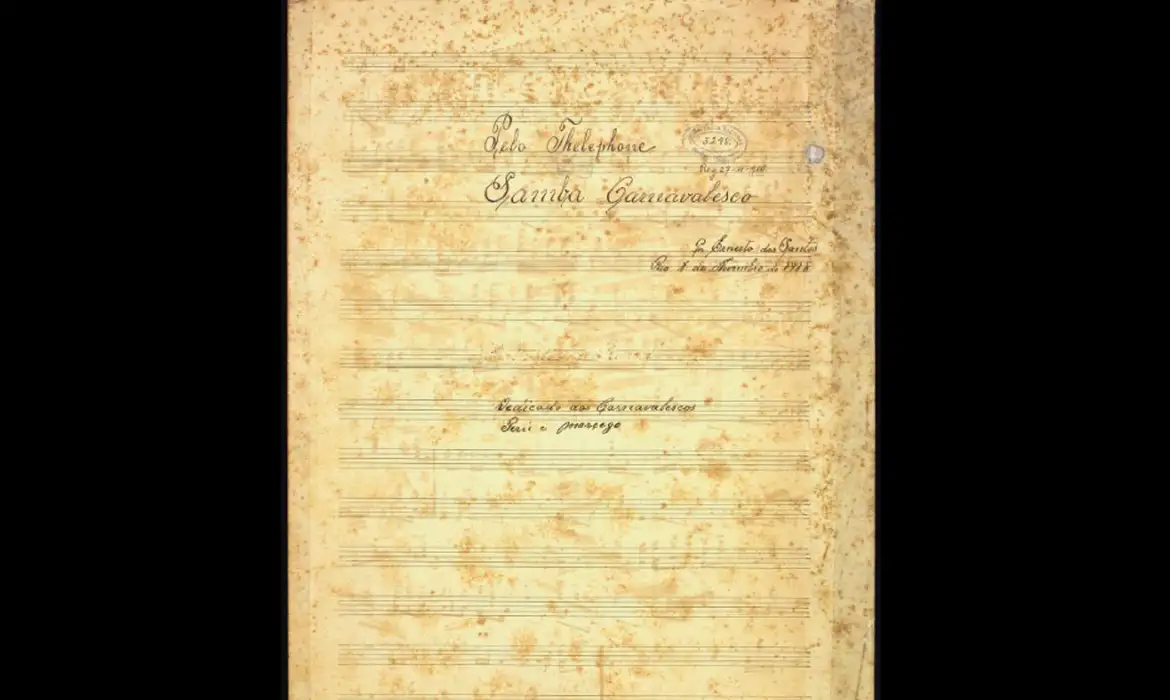 Pelo Thelephone
3295
Reg 27-11-916
Samba Carnavalesco
Ernesto dos Santos
Rio de Novembro de 1916
Dedicado aos Carnavalescos
Perú e morcego